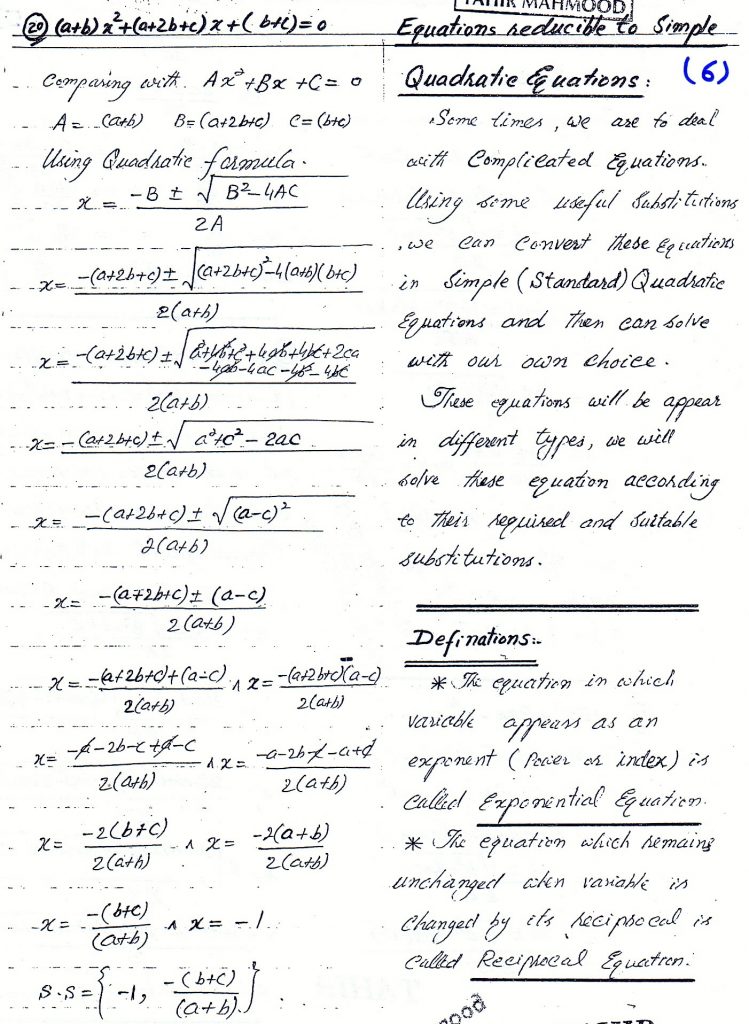 (20) (a+b)x²+(a+2b+c)x+(b+c)=0
Comparing with. Ax²+Bx+C=0
A=(a+b) B=(a+2b+c) C=(b+c)
Using Quadratic formula.
x = -B ± √B²-4AC / 2A
x= -(a+2b+c)±√(a+2b+c)²-4(a+b)(b+c) / 2(a+b)
x= -(a+2b+c)±√a²+4b²+c²+4ab+4bc+2ca
-4ab-4ac-4b²-4bc
2(a+b)
x= -(a+2b+c)±√a²+c²-2ac / 2(a+b)
x= -(a+2b+c)±√(a-c)² / 2(a+b)
x= -(a+2b+c)±(a-c) / 2(a+b)
x= -(a+2b+c)+(a-c) / 2(a+b) ∧ x= -(a+2b+c)-(a-c) / 2(a+b)
x= -a-2b-c+a-c / 2(a+b) ∧ x= -a-2b-c-a+c / 2(a+b)
x= -2(b+c) / 2(a+b) ∧ x= -2(a+b) / 2(a+b)
x= -(b+c) / (a+b) ∧ x= -1
S.S={-1, -(b+c) / (a+b)}.
TAHIR MAHMOOD
Equations reducible to Simple
Quadratic Equations: (6)
Some times, we are to deal
with Complicated Equations.
Using some useful Substitutions
, we can Convert these Equations
in Simple (Standard) Quadratic
Equations and then can solve
with our own choice.
These equations will be appear
in different types, we will
solve these equation according
to their required and suitable
substitutions.
Definations:-
* The equation in which
variable appears as an
exponent (Power or index) is
Called Exponential Equation.
* The equation which remains
unchanged when variable is
Changed by its reciprocal is
Called Reciprocal Equation.